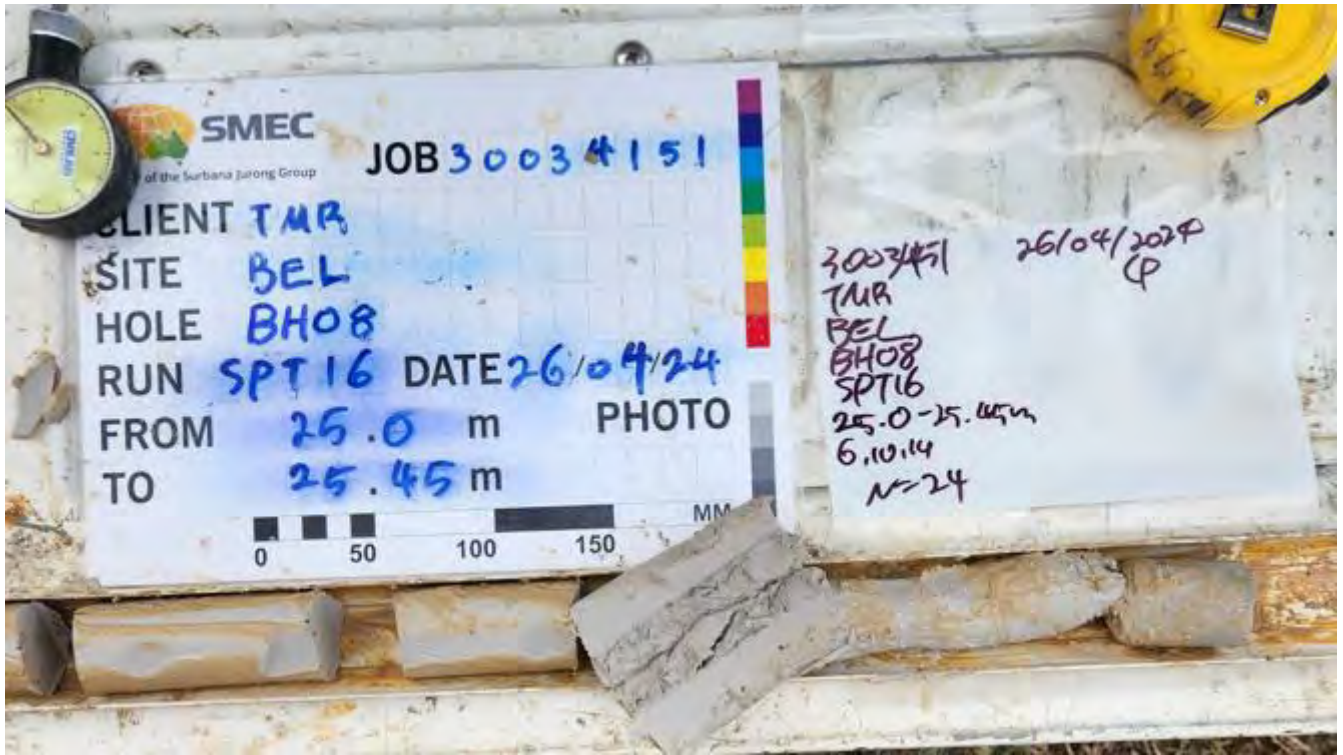 SMEC
of the Surbana Jurong Group
JOB 30034151
CLIENT TMR
SITE BEL
HOLE BH08
RUN SPT16 DATE 26/04/24
FROM 25.0 m PHOTO
TO 25.45 m
MM
0 50 100 150
3003451 26/04/2024
TMR
BEL
BH08
SPT16
25.0-25.45m
6,10,14
N=24